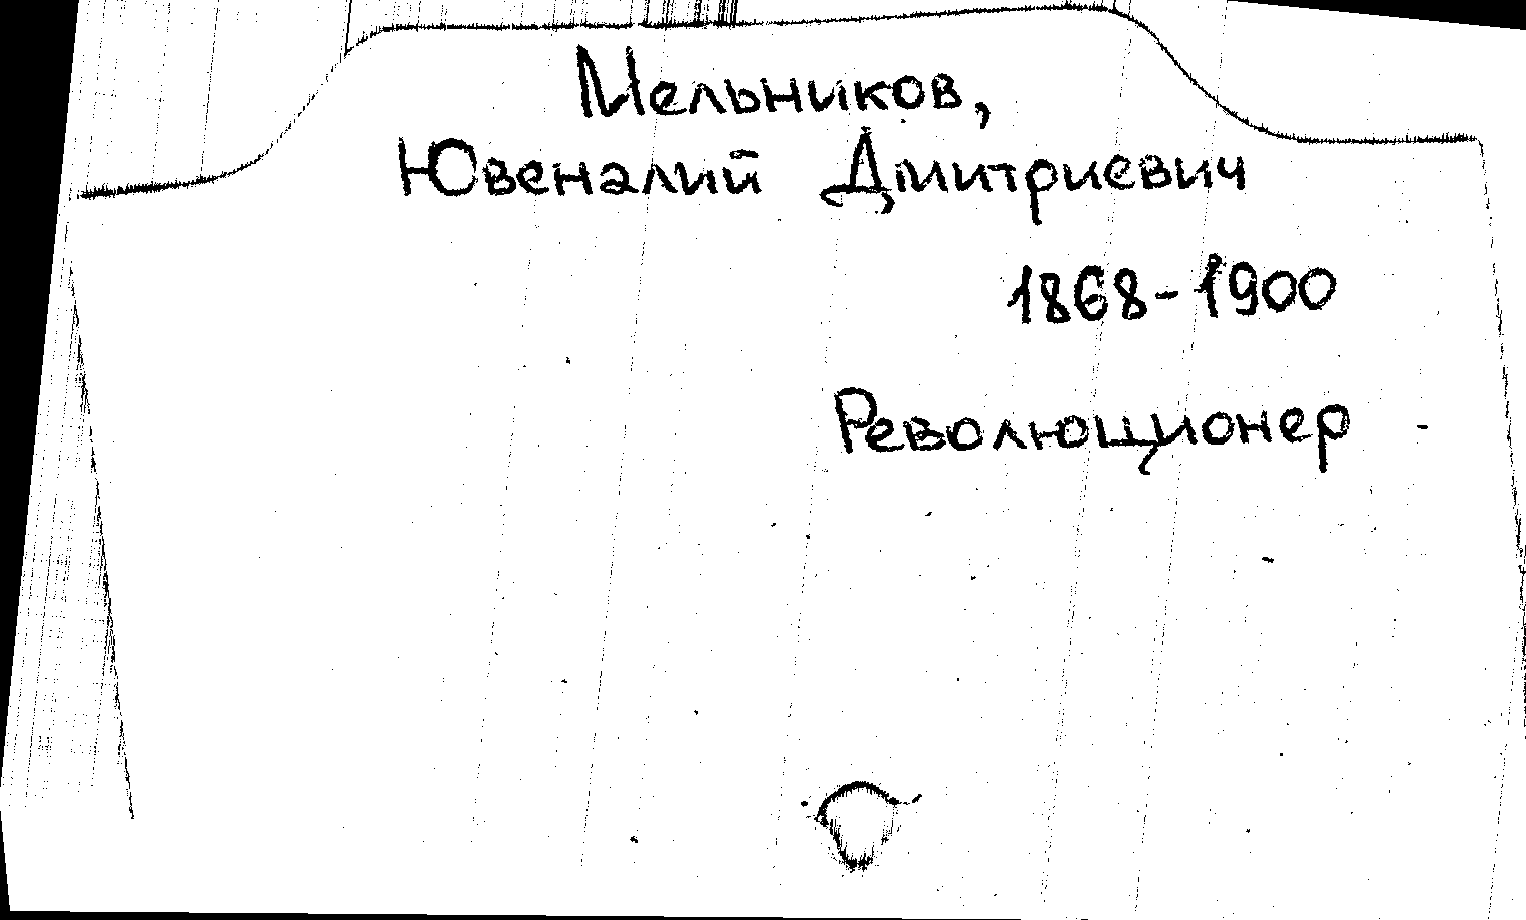 Мельников,
Ювеналий Дмитриевич
1868-1900
Революционер